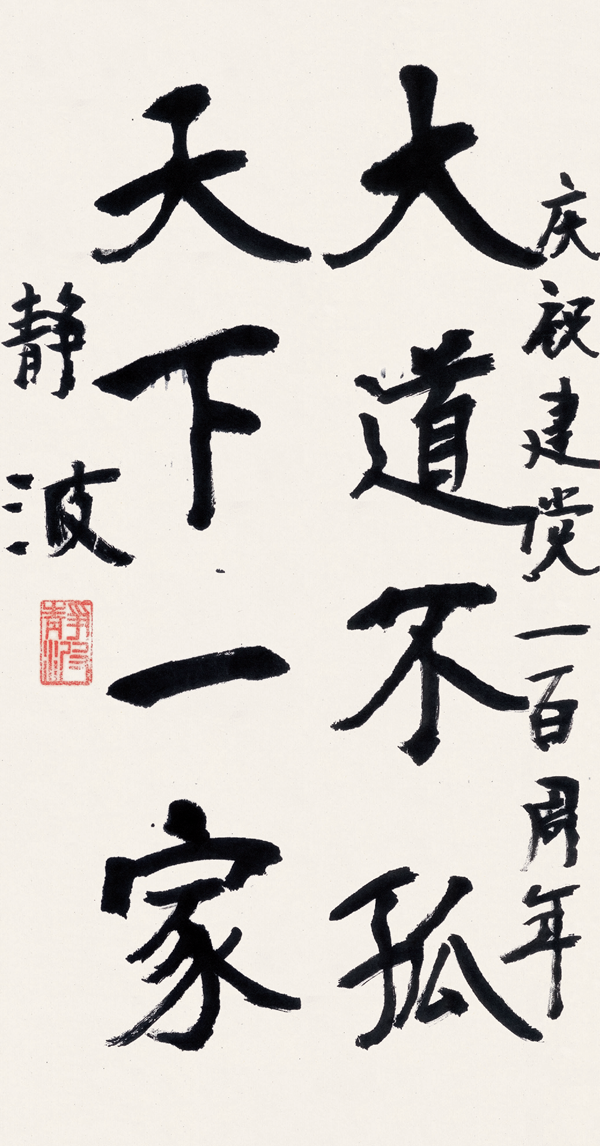 庆祝建党一百周年
大道不孤
天下一家
静波
静波